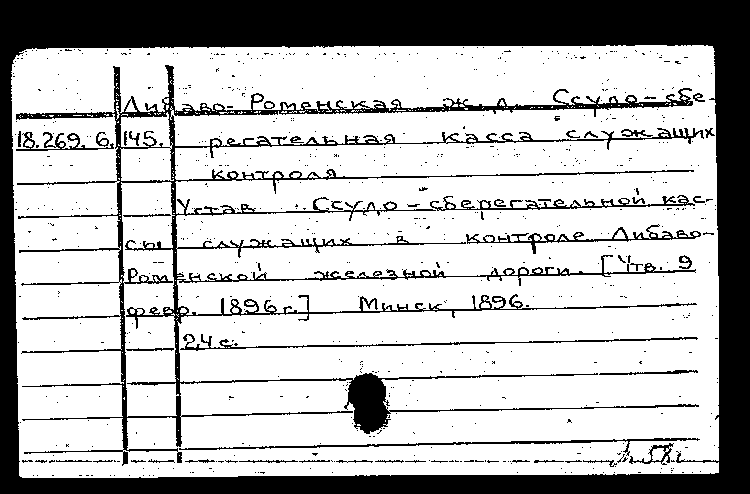 Либаво-Роменская ж. д. Ссудо-сбе-
18.269.6.145. регательная касса служащих
контроля.
Устав Ссудо-сберегательной кас-
сы служащих в контроле Либаво-
Роменской железной дороги. [Утв. 9
февр. 1896 г.] Минск, 1896.
24 с.